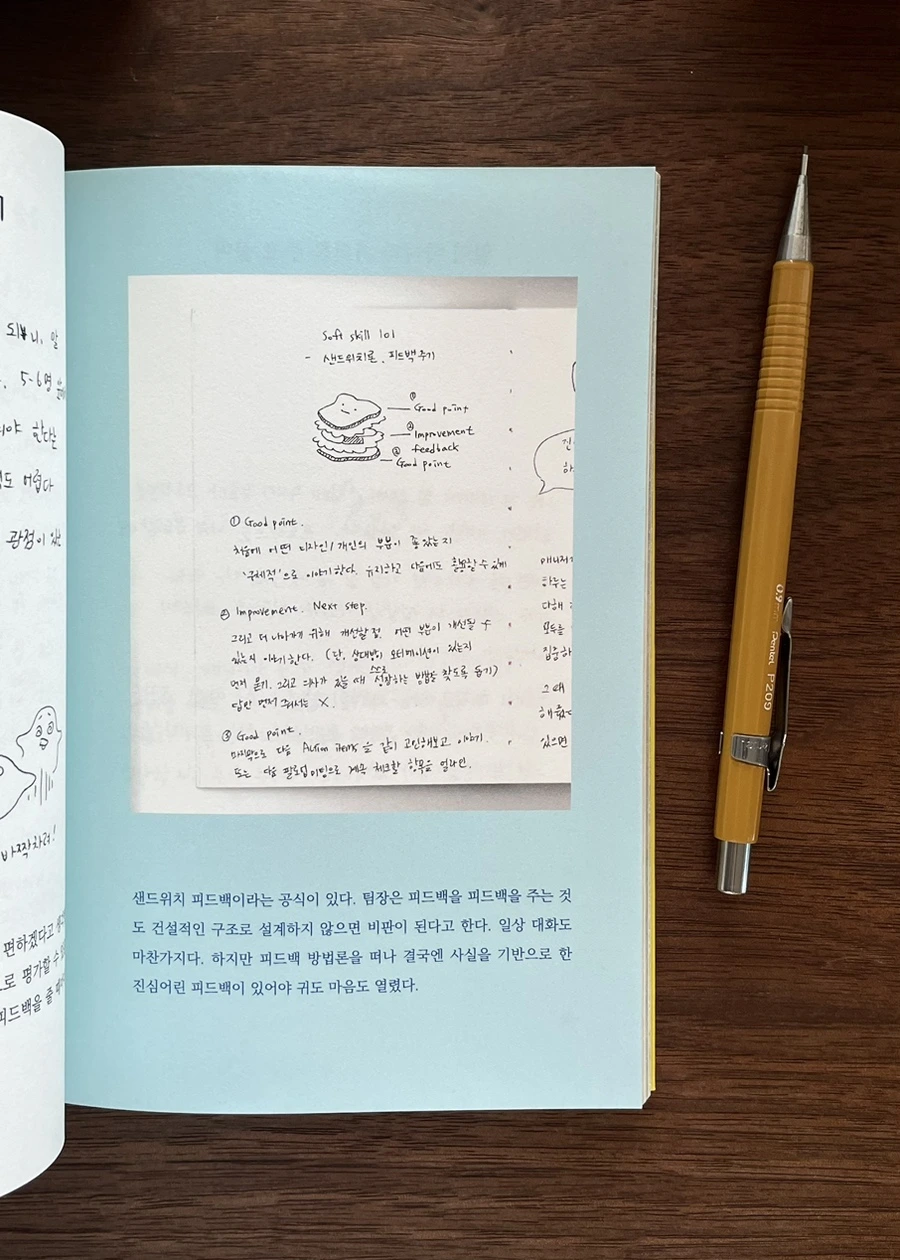 되니, 말
5-6명
야 한다는
도 어렵다
관점이 있는
바짝차려!
편하겠다고
로 평가할 수
피드백을 줄 때
Soft skill 101
- 샌드위치론. 피드백 주기
① Good point
② Improvement
feedback
③ Good point
① Good point.
처음에 어떤 디자인/개인의 부분이 좋았는지
'구체적'으로 이야기한다. 유지하고 다음에도 활용할 수 있게
② Improvement. Next step.
그리고 더 나아가기 위해 개선할 점. 어떤 부분이 개선될 수
있는지 이야기한다. (단, 상대방이 모티베이션이 있는지
먼저 묻기. 그리고 의사가 있을 때 스스로 성장하는 방법을 찾도록 돕기)
답만 먼저 줘서는 X.
③ Good point.
마지막으로 다음 Action items을 같이 고민해보고 이야기.
또는 다음 팔로업 미팅으로 계속 체크할 항목을 얼라인.
진
하
매니저
하루는
다해
모두를
집중하
그때
해줬
있으면
샌드위치 피드백이라는 공식이 있다. 팀장은 피드백을 피드백을 주는 것
도 건설적인 구조로 설계하지 않으면 비판이 된다고 한다. 일상 대화도
마찬가지다. 하지만 피드백 방법론을 떠나 결국엔 사실을 기반으로 한
진심어린 피드백이 있어야 귀도 마음도 열렸다.
0.9 Pentel P209